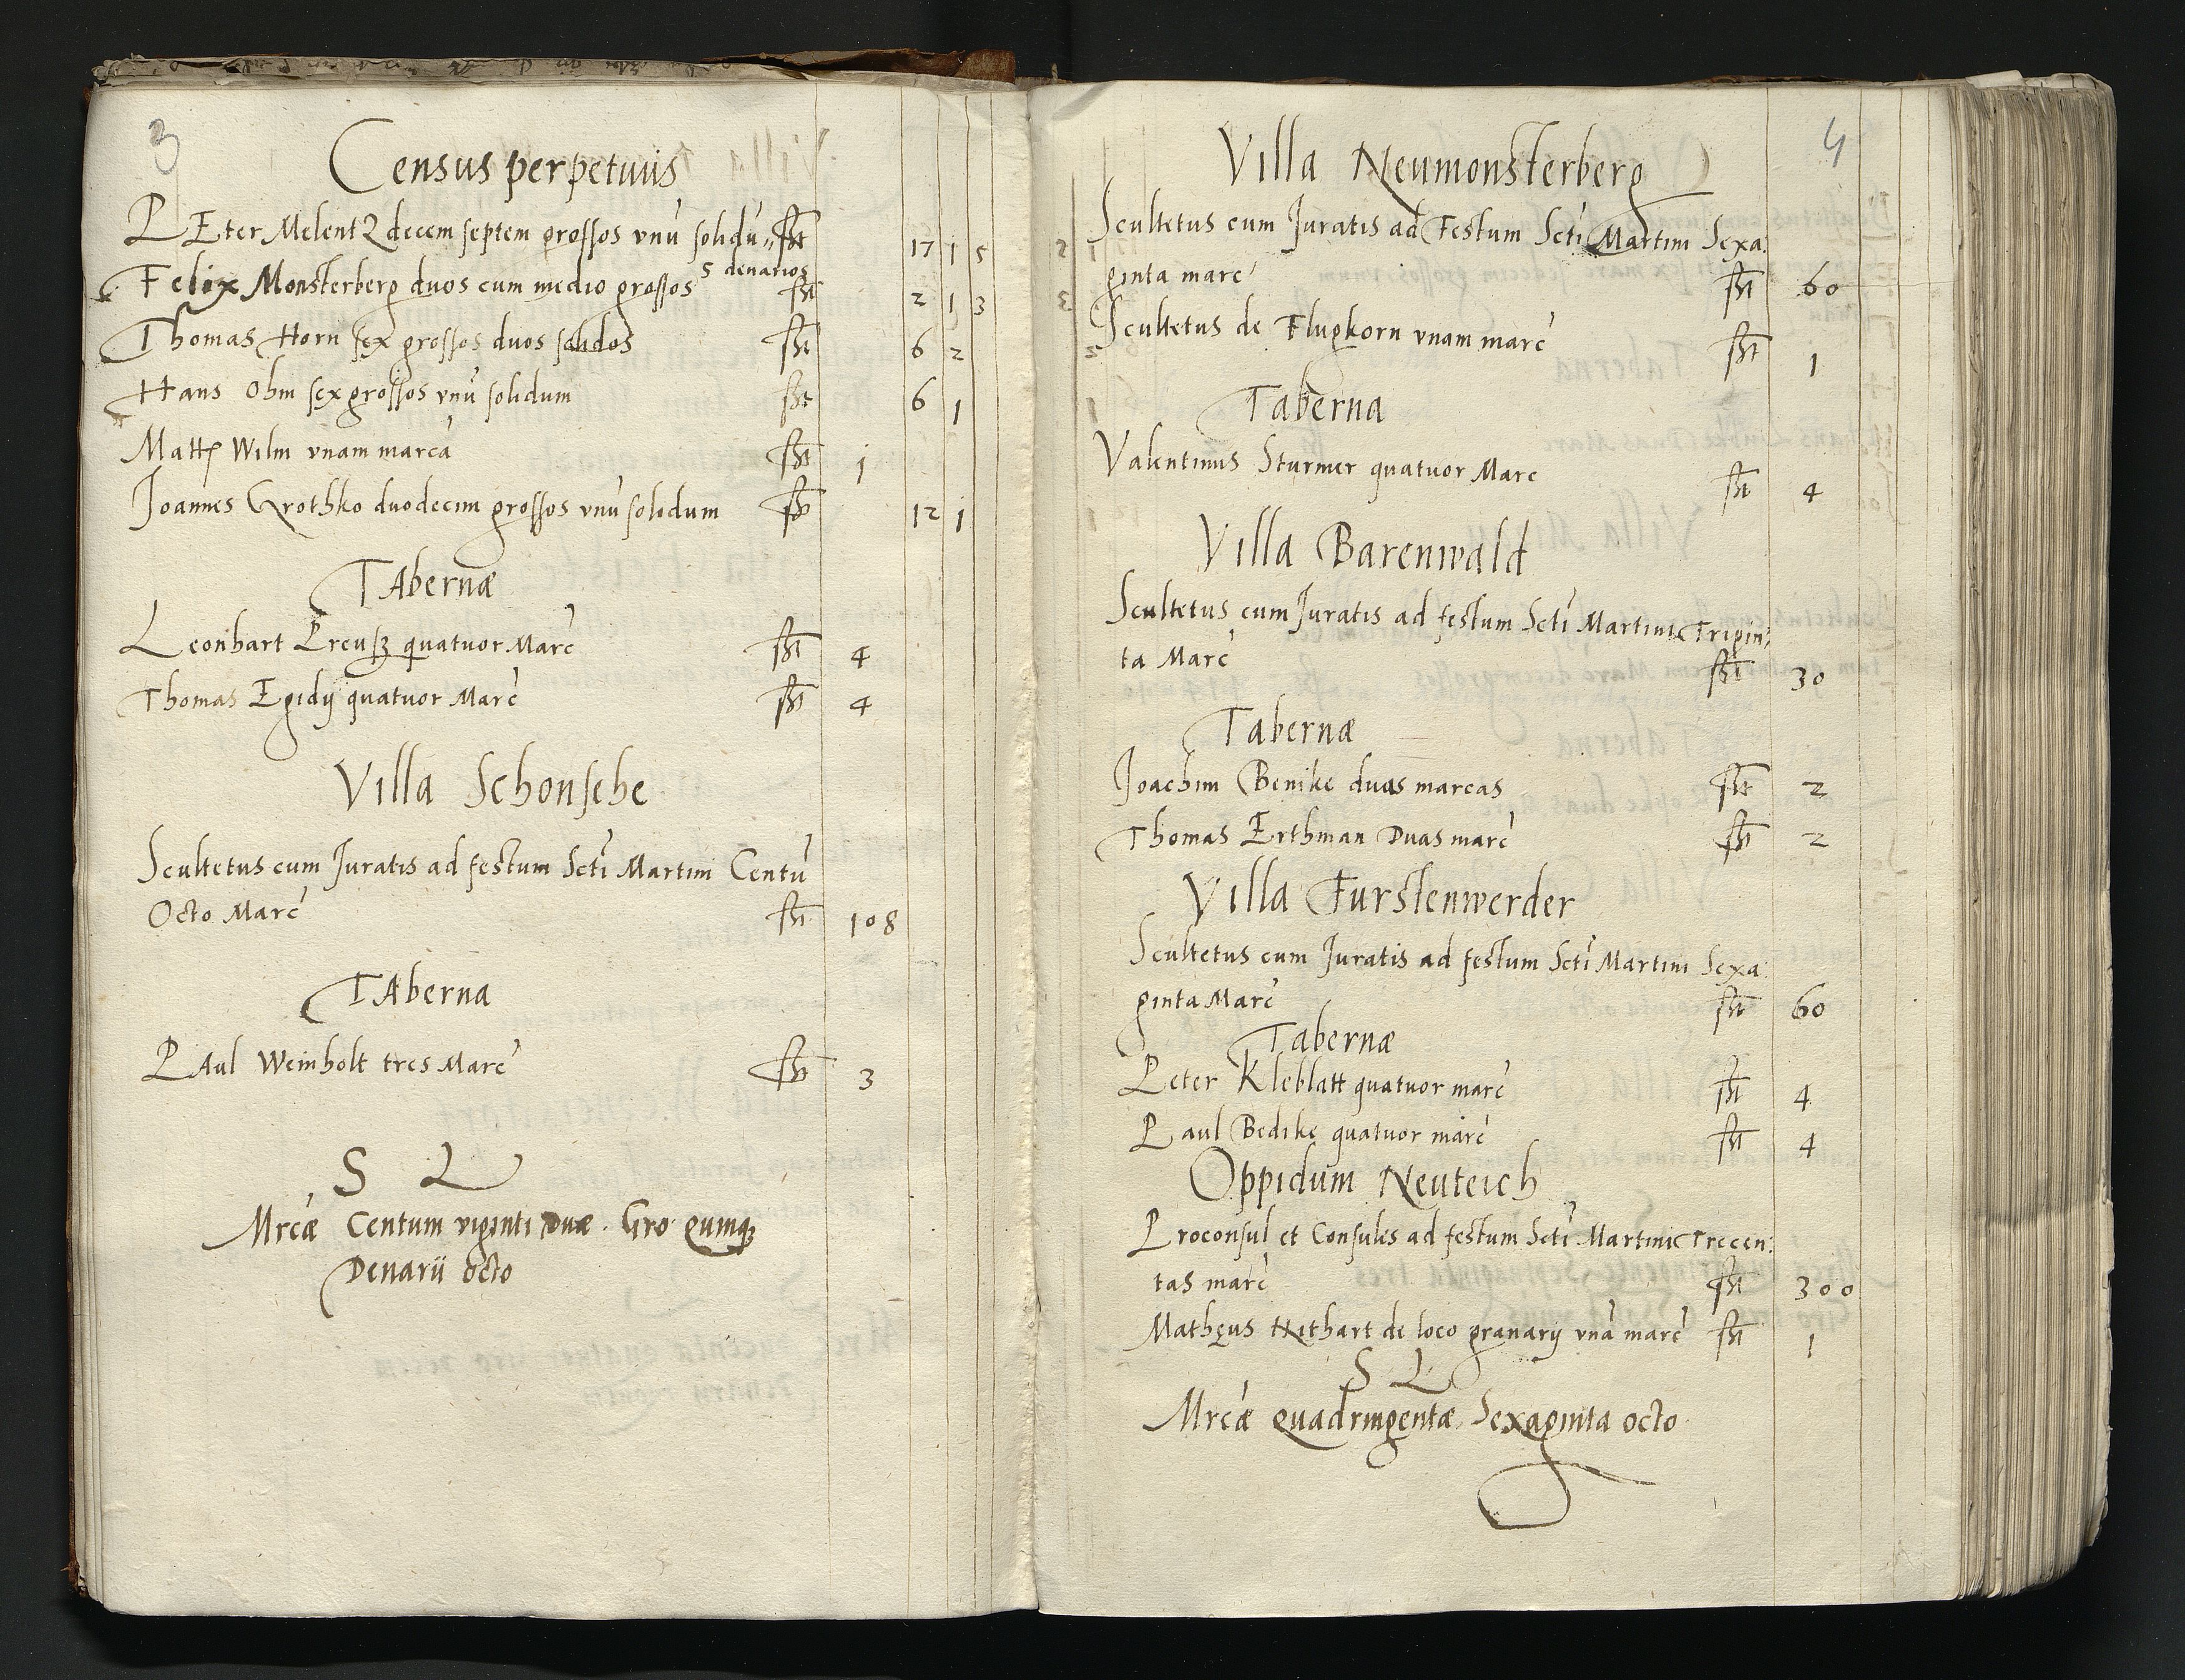 3
Census perpetuus
PEter Melentz decem septem grossos vnū solidū 17 1 5
5 denarios
Felix Monsterberg duos cum medio grossos 2 1 3
Thomas Horn sex grossos duos solidos 6 2
Hans Ohm sex grossos vnū solidum 6 1
Matt Wilm vnam marcā 1
Joannes Grothko duodecim grossos vnū solidum 12 1
TAbernæ
Leonhart Preusz quatuor Marc 4
Thomas Egidij quatuor Marc 4
Villa Schonsehe
Scultetus cum Juratis ad festum Scti Martini Centū
Octo Marc 108
TAberna
PAul Weinholt tres Marc 3
S L
Mrcæ Centum viginti Duæ. Gro quinq
Denarii octo
4
Villa Neumonsterberg
Scultetus cum Juratis ad Festum Scti Martini Sexa:
ginta marc 60
Scultetus de Flugkorn vnam marc 1
Taberna
Valentinus Sturmer quatuor Marc 4
Villa Barenwald
Scultetus cum Juratis ad festum Scti Martini Trigin:
ta Marc 30
Tabernæ
Joachim Benike duas marcas 2
Thomas Erthman Duas marc 2
Villa Furstenwerder
Scultetus cum Juratis ad festum Scti Martini Sexa:
ginta Marc 60
Tabernæ
Peter Kleblatt quatuor marc 4
Paul Bedike quatuor marc 4
Oppidum Neuteich
Proconsul et Consules ad festum Scti Martini Trecen:
tas marc 300
Mathęus Nithart de loco granarij vnā marc 1
S L
Mrcæ quadringentæ Sexaginta octo